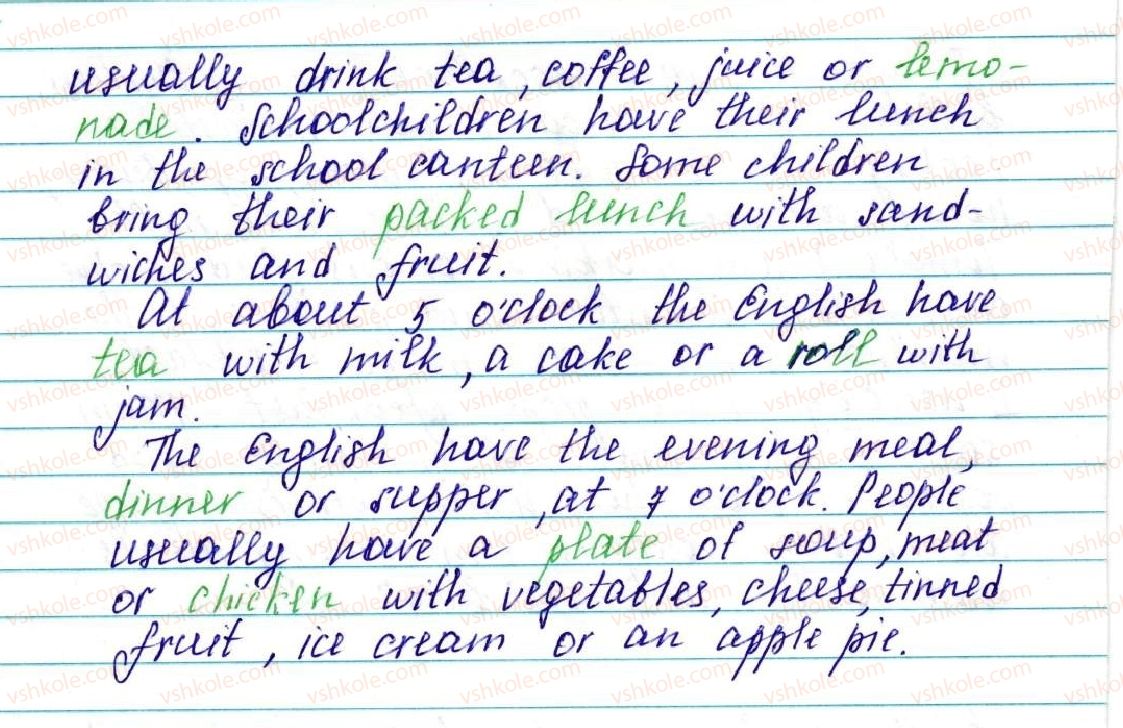 usually drink tea, coffee, juice or lemo-
nade. Schoolchildren have their lunch
in the school canteen. Some children
bring their packed lunch with sand-
wiches and fruit.
At about 5 o'clock the English have
tea with milk, a cake or a roll with
jam.
The English have the evening meal,
dinner or supper, at 7 o'clock. People
usually have a plate of soup, meat
or chicken with vegetables, cheese, tinned
fruit, ice cream or an apple pie.
vshkole.com